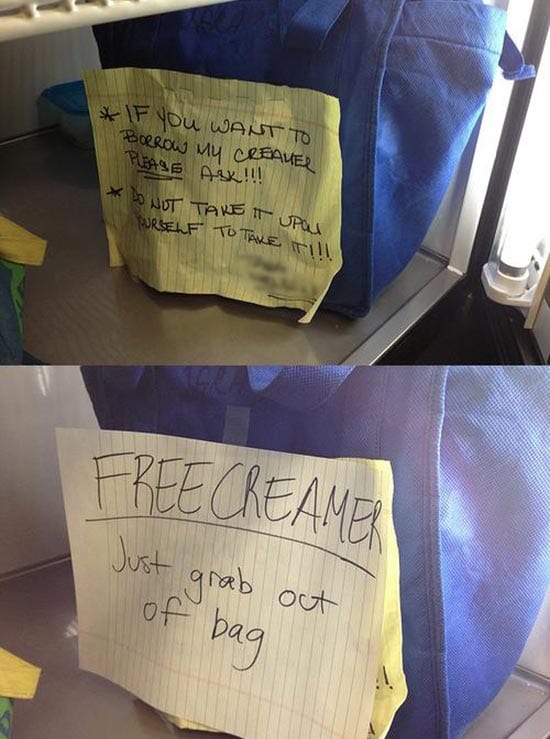 * IF YOU WANT TO
BORROW MY CREAMER
PLEASE ASK!!!
* DO NOT TAKE IT UPON
YOURSELF TO TAKE IT!!!
FREE CREAMER
Just grab out
of bag
!!